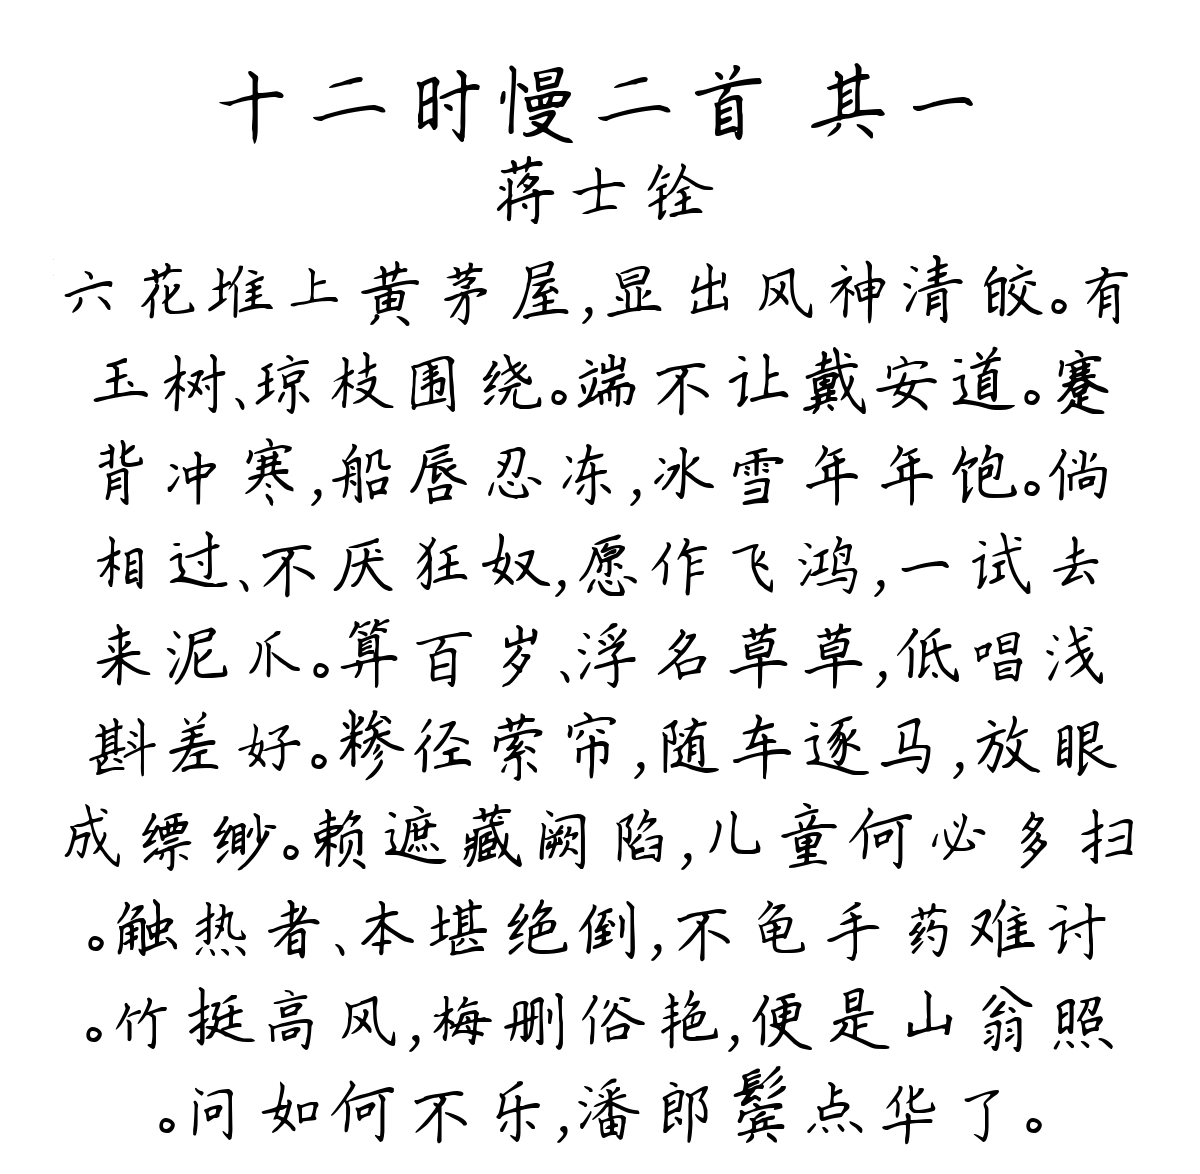 十二时慢二首 其一
蒋士铨
六花堆上黄茅屋,显出风神清皎。有
玉树、琼枝围绕。端不让戴安道。蹇
背冲寒,船唇忍冻,冰雪年年饱。倘
相过、不厌狂奴,愿作飞鸿,一试去
来泥爪。算百岁、浮名草草,低唱浅
斟差好。糁径萦帘,随车逐马,放眼
成缥缈。赖遮藏阙陷,儿童何必多扫
。触热者、本堪绝倒,不龟手药难讨
。竹挺高风,梅删俗艳,便是山翁照
。问如何不乐,潘郎鬓点华了。